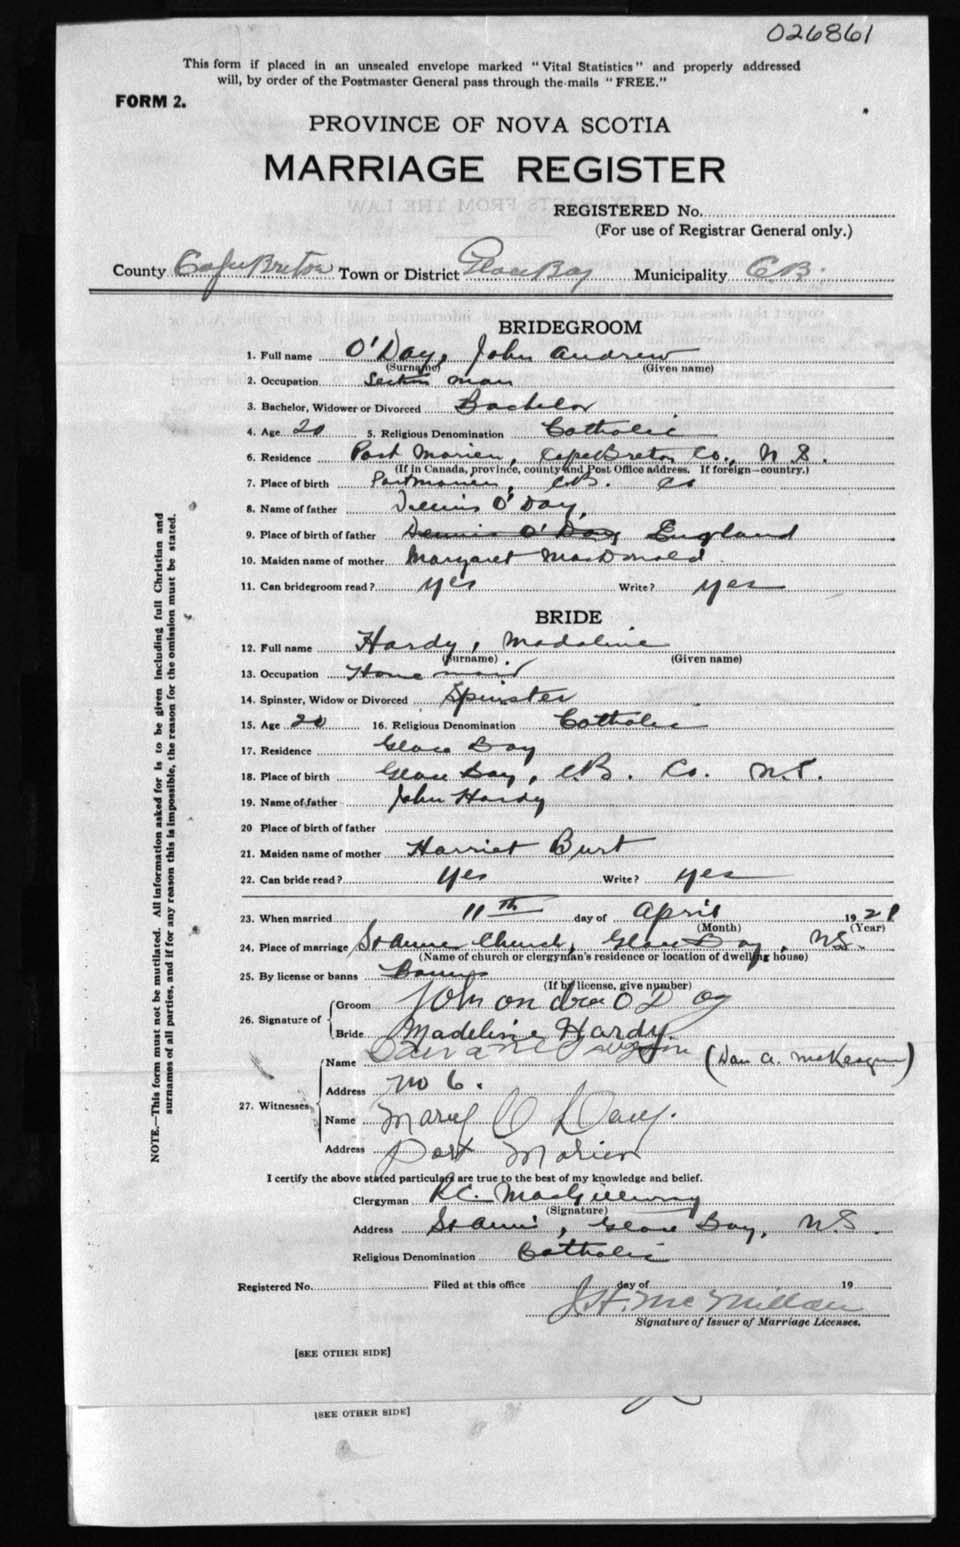 026861
This form if placed in an unsealed envelope marked "Vital Statistics" and properly addressed
will, by order of the Postmaster General pass through the mails "FREE."
FORM 2.
PROVINCE OF NOVA SCOTIA
MARRIAGE REGISTER
REGISTERED No.
(For use of Registrar General only.)
County Cape Breton Town or District Glace Bay Municipality C.B.
BRIDEGROOM
1. Full name O'Day, John Andrew
(Surname) (Given name)
2. Occupation Section man
3. Bachelor, Widower or Divorced Bachelor
4. Age 20 5. Religious Denomination Catholic
6. Residence Port Morien, Cape Breton Co., N.S.
(If in Canada, province, county and Post Office address. If foreign—country.)
7. Place of birth Port Morien, C.B. Co
8. Name of father Dennis O'Day,
9. Place of birth of father Dennis O'Day England
10. Maiden name of mother Margaret MacDonald
11. Can bridegroom read? yes Write? yes
BRIDE
12. Full name Hardy, Madeline
(Surname) (Given name)
13. Occupation House maid
14. Spinster, Widow or Divorced Spinster
15. Age 20 16. Religious Denomination Catholic
17. Residence Glace Bay
18. Place of birth Glace Bay, C.B. Co. N.S.
19. Name of father John Hardy
20 Place of birth of father
21. Maiden name of mother Harriet Burt
22. Can bride read? yes Write? yes
23. When married 11th day of April 1921
(Month) (Year)
24. Place of marriage St Anne Church, Glace Bay, N.S.
(Name of church or clergyman's residence or location of dwelling house)
25. By license or banns Banns
(If by license, give number)
26. Signature of Groom John Andrew O Day
Bride Madeline Hardy
27. Witnesses Name (Dan A. McKeagan)
Address No 6.
Name Mary O Day.
Address Port Morien
I certify the above stated particulars are true to the best of my knowledge and belief.
Clergyman R.C. MacGillivray
(Signature)
Address St Anns, Glace Bay, N.S.
Religious Denomination Catholic
Registered No. Filed at this office day of 19
J.H. McMillan
Signature of Issuer of Marriage Licenses.
[SEE OTHER SIDE]
[SEE OTHER SIDE]
NOTE.—This form must not be mutilated. All information asked for is to be given including full Christian and
surnames of all parties, and if for any reason this is impossible, the reason for the omission must be stated.